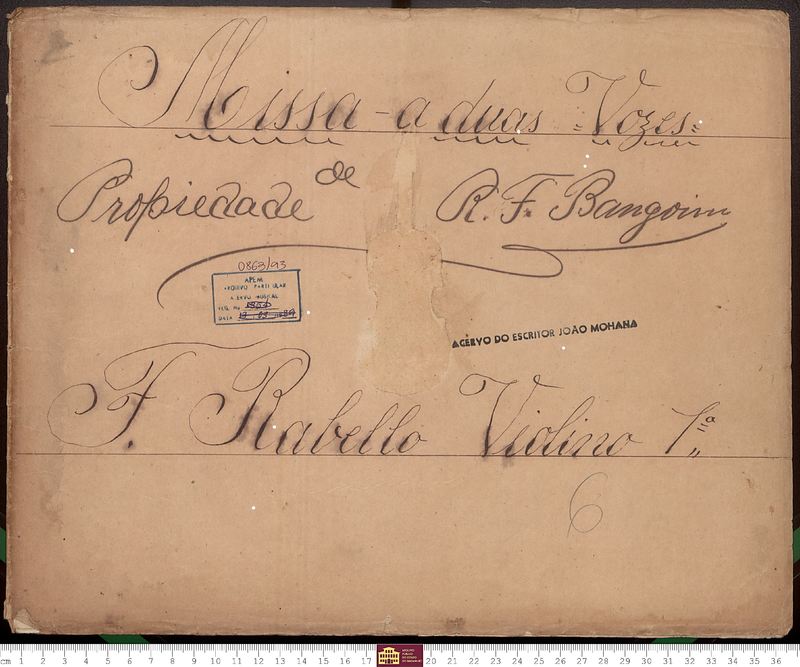 Missa - a duas = Vozes =
Propiedade de R. F. Bangoim
0863/93
APEM
ARQUIVO PARTICULAR
ACERVO MUSICAL
REG. No
DATA
ACERVO DO ESCRITOR JOÃO MOHANA
F. Rabello Violino 1.ª
6
cm 1 2 3 4 5 6 7 8 9 10 11 12 13 14 15 16 17 20 21 22 23 24 25 26 27 28 29 30 31 32 33 34 35 36